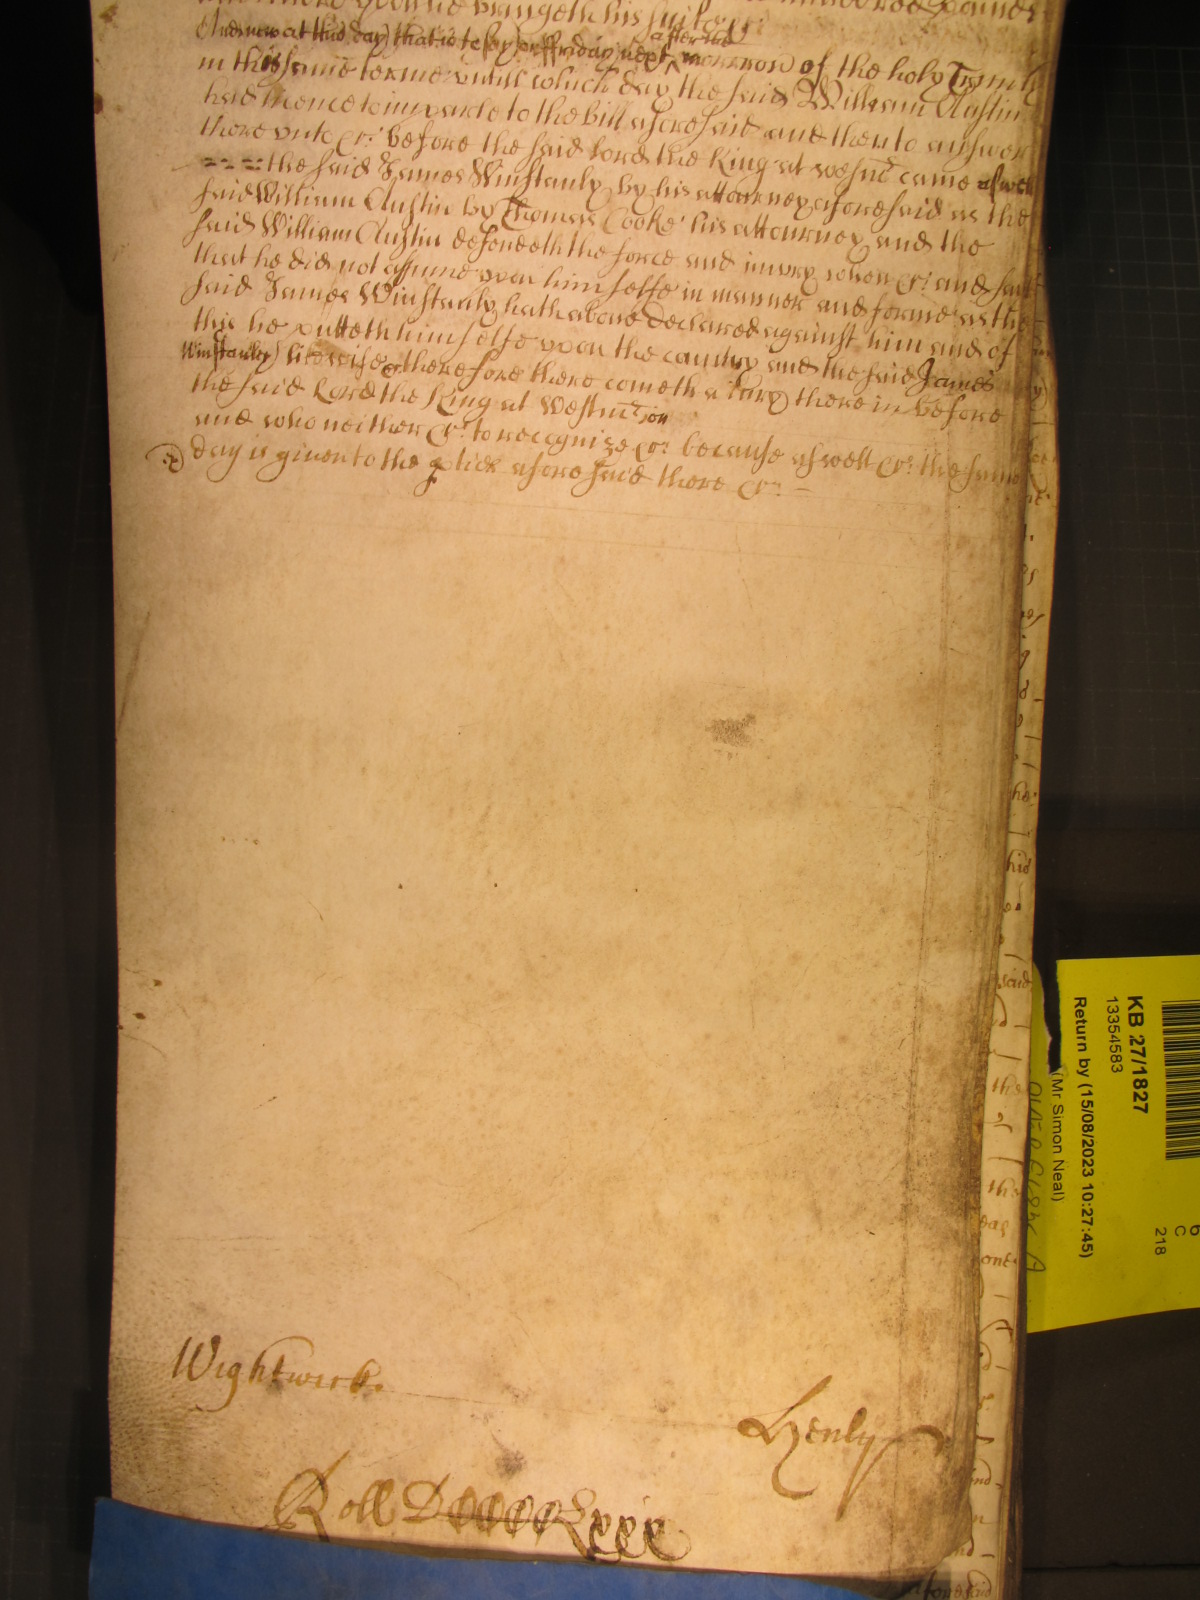 And now at this day) that is to say) on ffriday) next ^ after the morrow of the holy Trinity
in this same terme untill which day the said William Austin
had licence to imparle to the bill aforesaid and then to answer
there unto &c: before the said lord the King at Westm̃ came aswell
the said James Winstanly by his attorney aforesaid as the
said William Austin by Thomas Cooke his attourney and the
said William Austin defendeth the force and iniury when &c: and saith
that he did not assume upon himselfe in manner and forme as the
said James Winstanly hath above declared against him and of
this he putteth himselfe upon the country and the said James
Winstanly) likewise &c therefore there cometh a Jury there in before
the said Lord the King at Westm̃ on
and who neither &c: to recognize &c: because aswell &c: the same
day is given to the ꝑties aforesaid there &c:
Wightwick.
Henly
Roll DCCCCLxxx
he
hid
said
the
the
day
ont
aforesaid
KB 27/1827
13354583
Return by (15/08/2023 10:27:45)
(Mr Simon Neal)
6
C
218